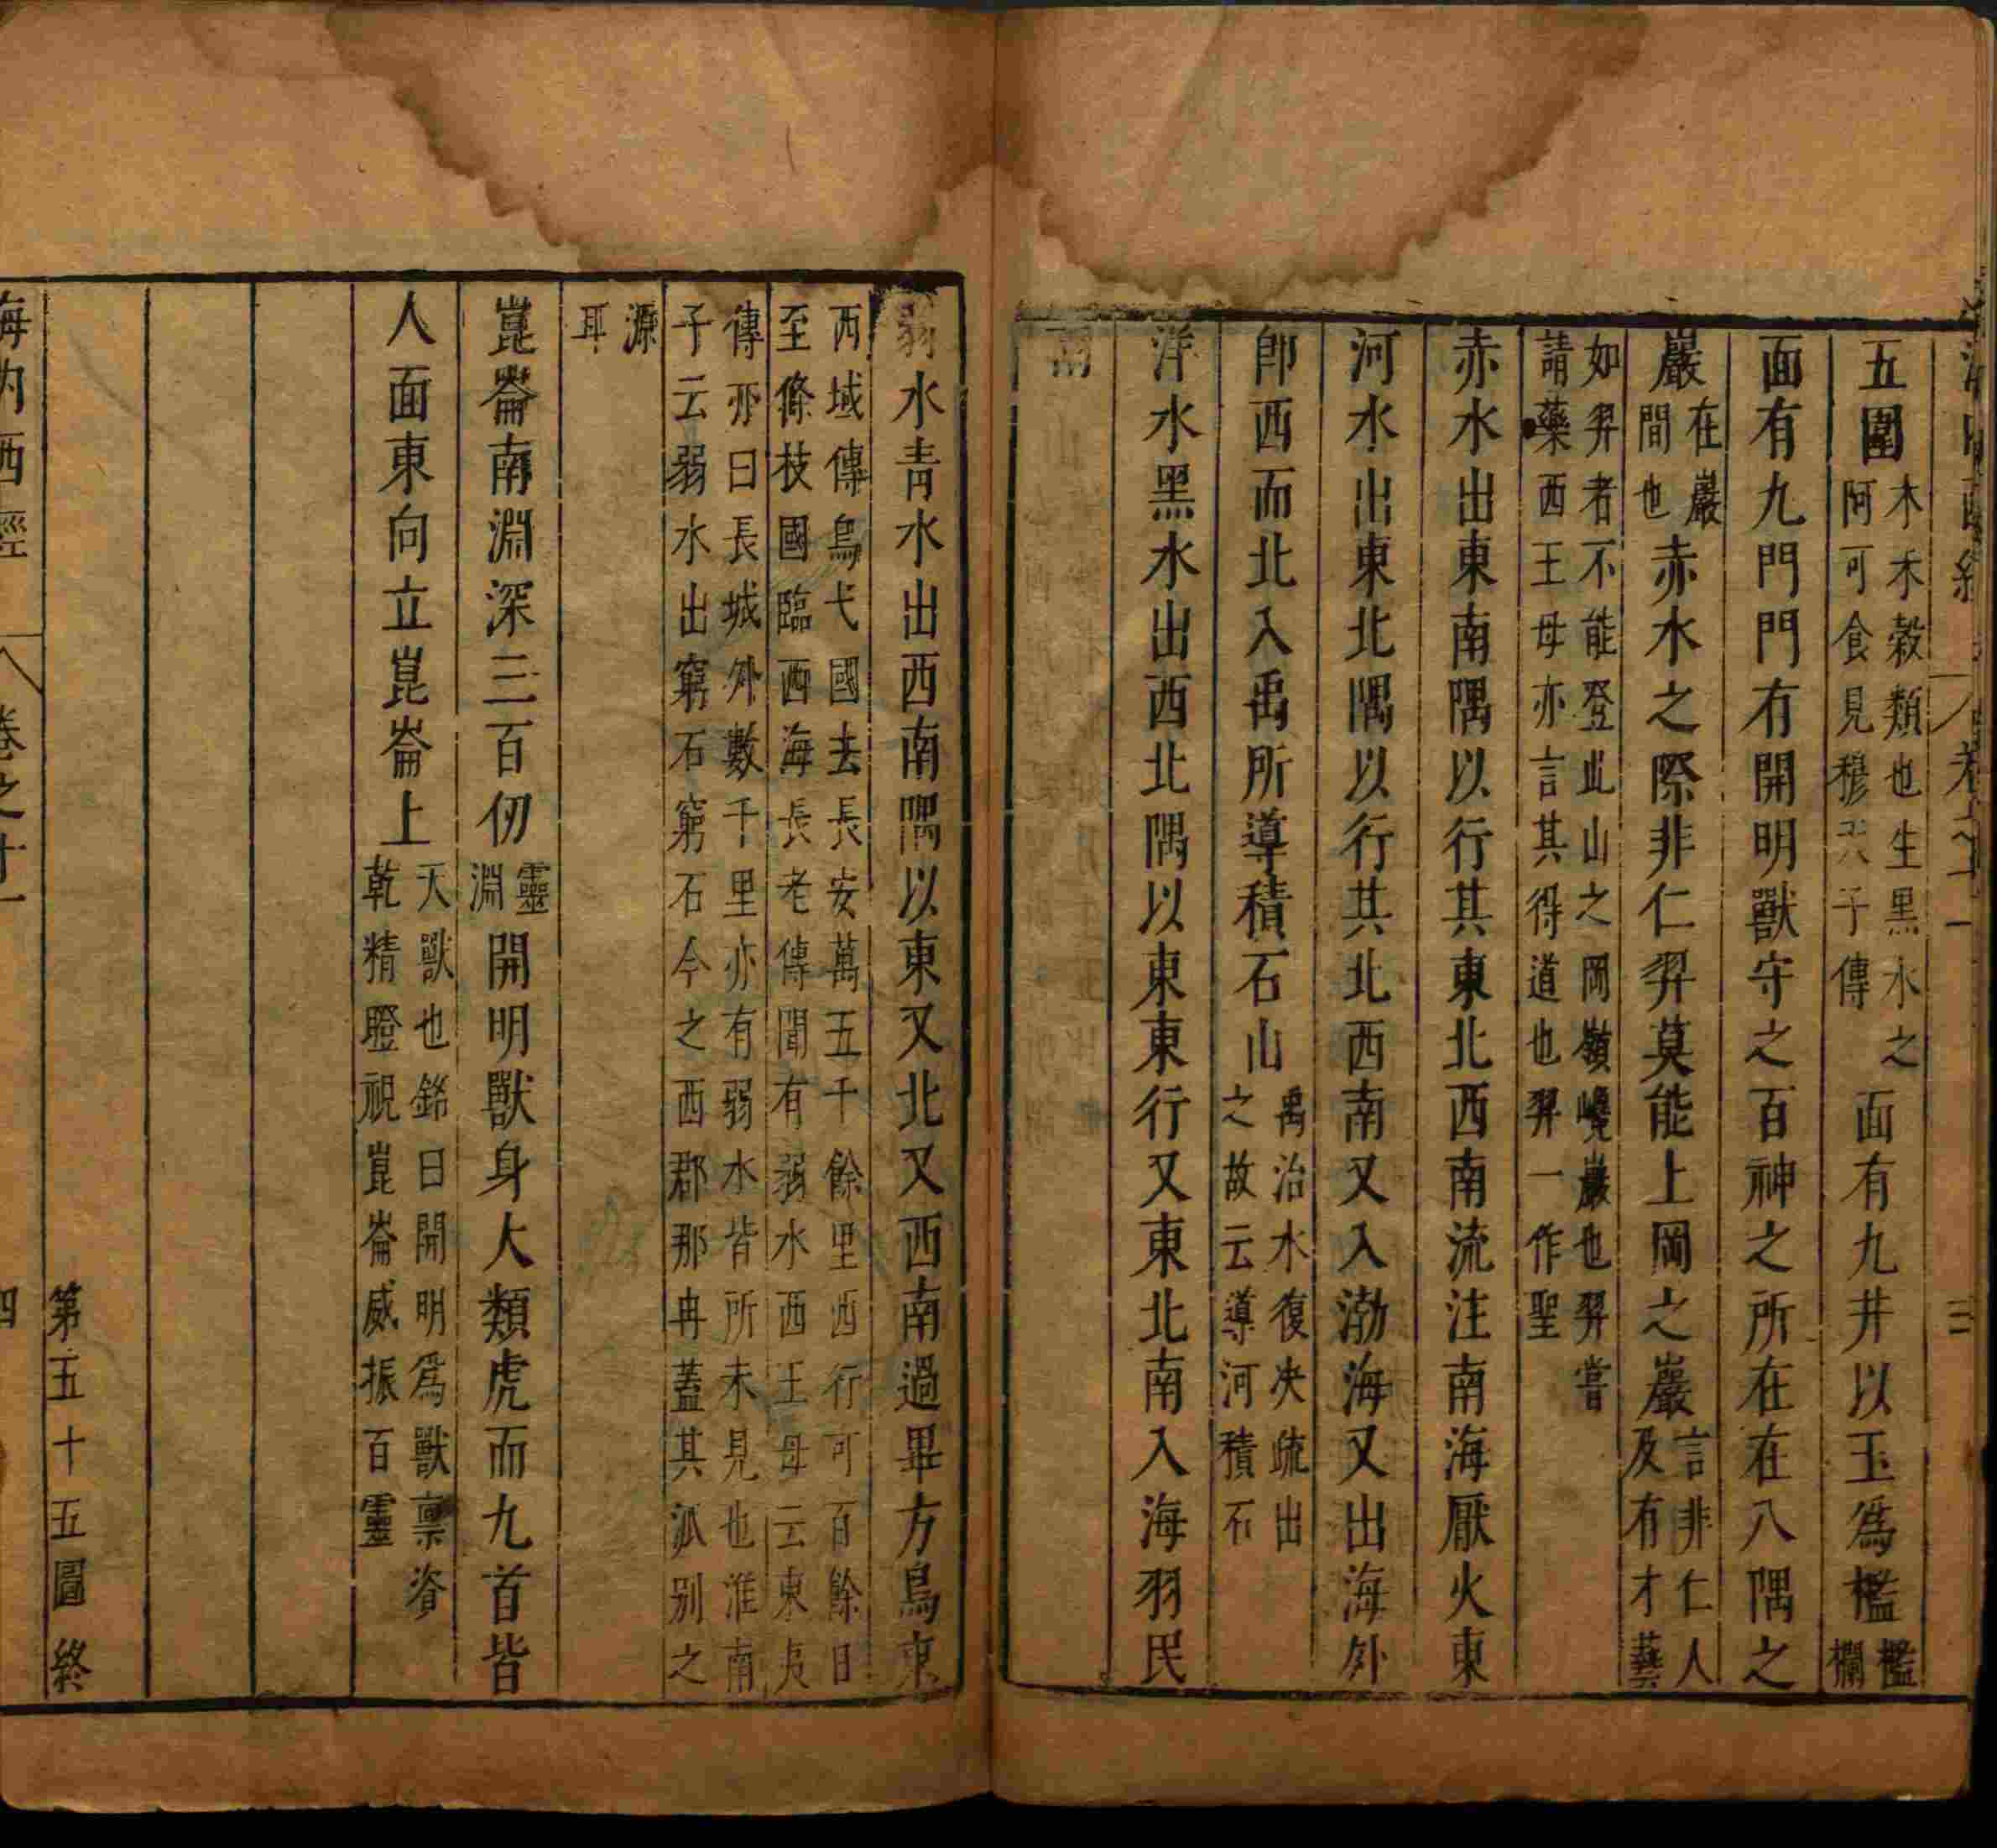 五圍木禾穀類也生黑水之阿可食見穆天子傳面有九井以玉爲檻檻欄
面有九門門有開明獸守之百神之所在在八隅之
巖在巖間也赤水之際非仁羿莫能上岡之巖言非仁人及有才藝
如羿者不能登此山之岡嶺巉巖也羿嘗請藥西王母亦言其得道也羿一作聖
赤水出東南隅以行其東北西南流注南海厭火東
河水出東北隅以行其北西南又入渤海又出海外
即西而北入禹所導積石山禹治水復决疏出之故云導河積石
洋水黑水出西北隅以東東行又東北南入海羽民
南
弱水青水出西南隅以東又北又西南過畢方鳥東
西域傳烏弋國去長安萬五千餘里西行可百餘日至條枝國臨西海長老傳聞有弱水西王母云東夷
傳亦曰長城外數千里亦有弱水皆所未見也淮南子云弱水出窮石窮石今之西郡那冉蓋其泒别之
源耳
崑崙南淵深三百仞靈淵開明獸身大類虎而九首皆
人面東向立崑崙上天獸也銘曰開明爲獸禀資乾精瞪視崑崙威振百靈
第五十五圖終
海内西經 卷之十一 四